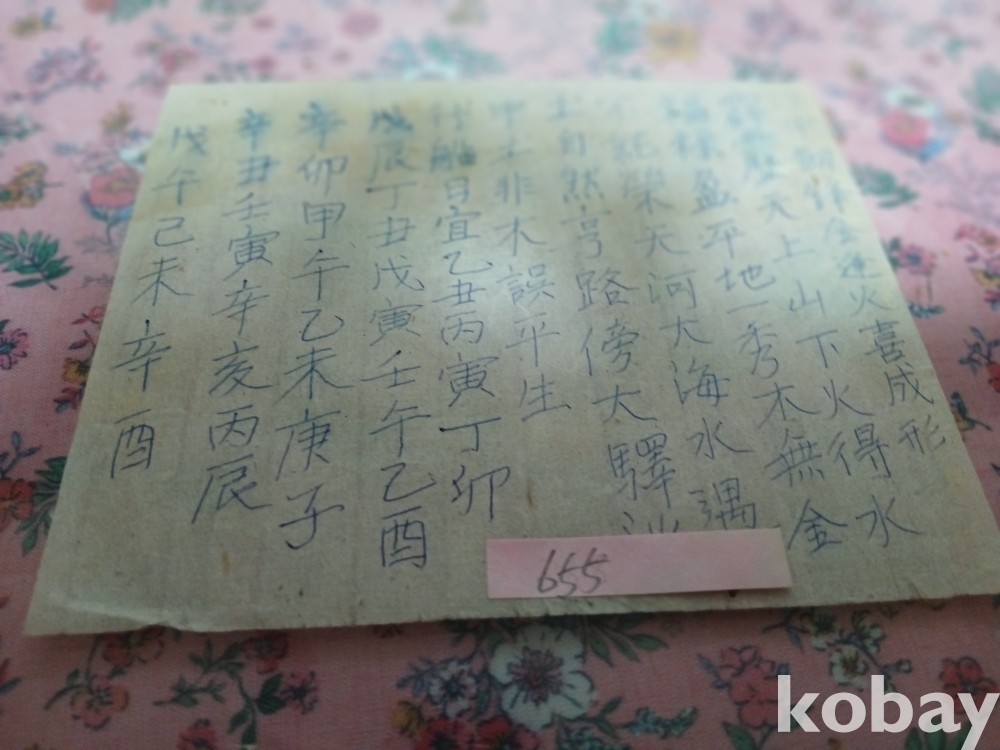 金逢火喜成形
天上山下火得水
福祿盈平地一秀木無金
不能榮天河大海水遇
土自然亨路傍大驛
中土非木誤平生
行船日宜乙丑丙寅丁卯
戊辰丁丑戊寅壬午乙酉
辛卯甲午乙未庚子
辛丑壬寅辛亥丙辰
戊午己未辛酉
655
kobay